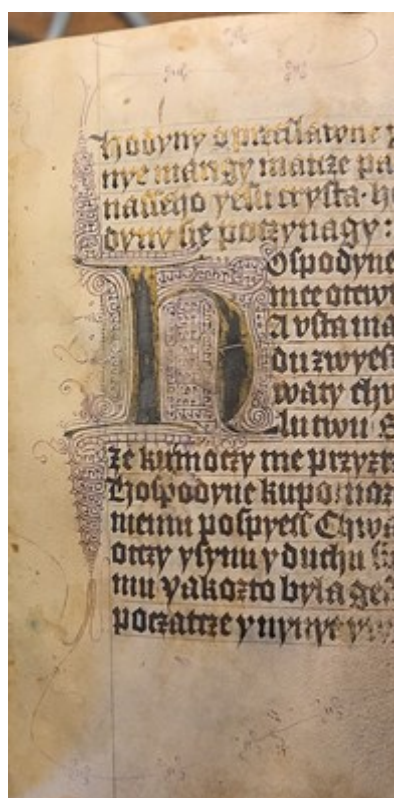 hodyny o przeslawne p
nye marigy matcze pa
nasseho yesu crysta· h
dyny sie poczynagy:
Hospodyne
mee otew
A vsta ma
du zwyest
waty chw
lu twu
ze kumoczy me przyz
hospodyne kupomoz
memu pospyess Chwa
otczy ysynu y duchu
mu yakozto byla ges
poczatcze ynynye yw